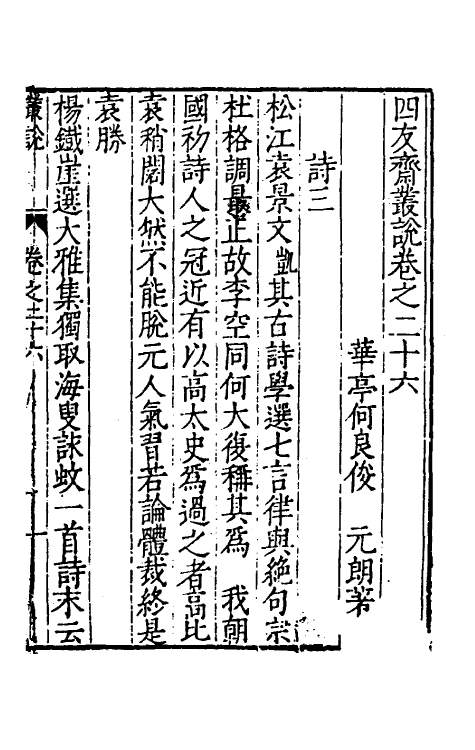 四友齋叢説卷之二十六
華亭何良俊 元朗著
詩三
松江袁景文凱其古詩學選七言律與絶句宗
杜格調最正故李空同何大復稱其爲 我朝
國初詩人之冠近有以高太史爲過之者高比
袁稍闊大然不能脫元人氣習若論體裁終是
袁勝
楊鐵崖選大雅集獨取海叟詠蚊一首詩末云
叢説 卷之二十六 一